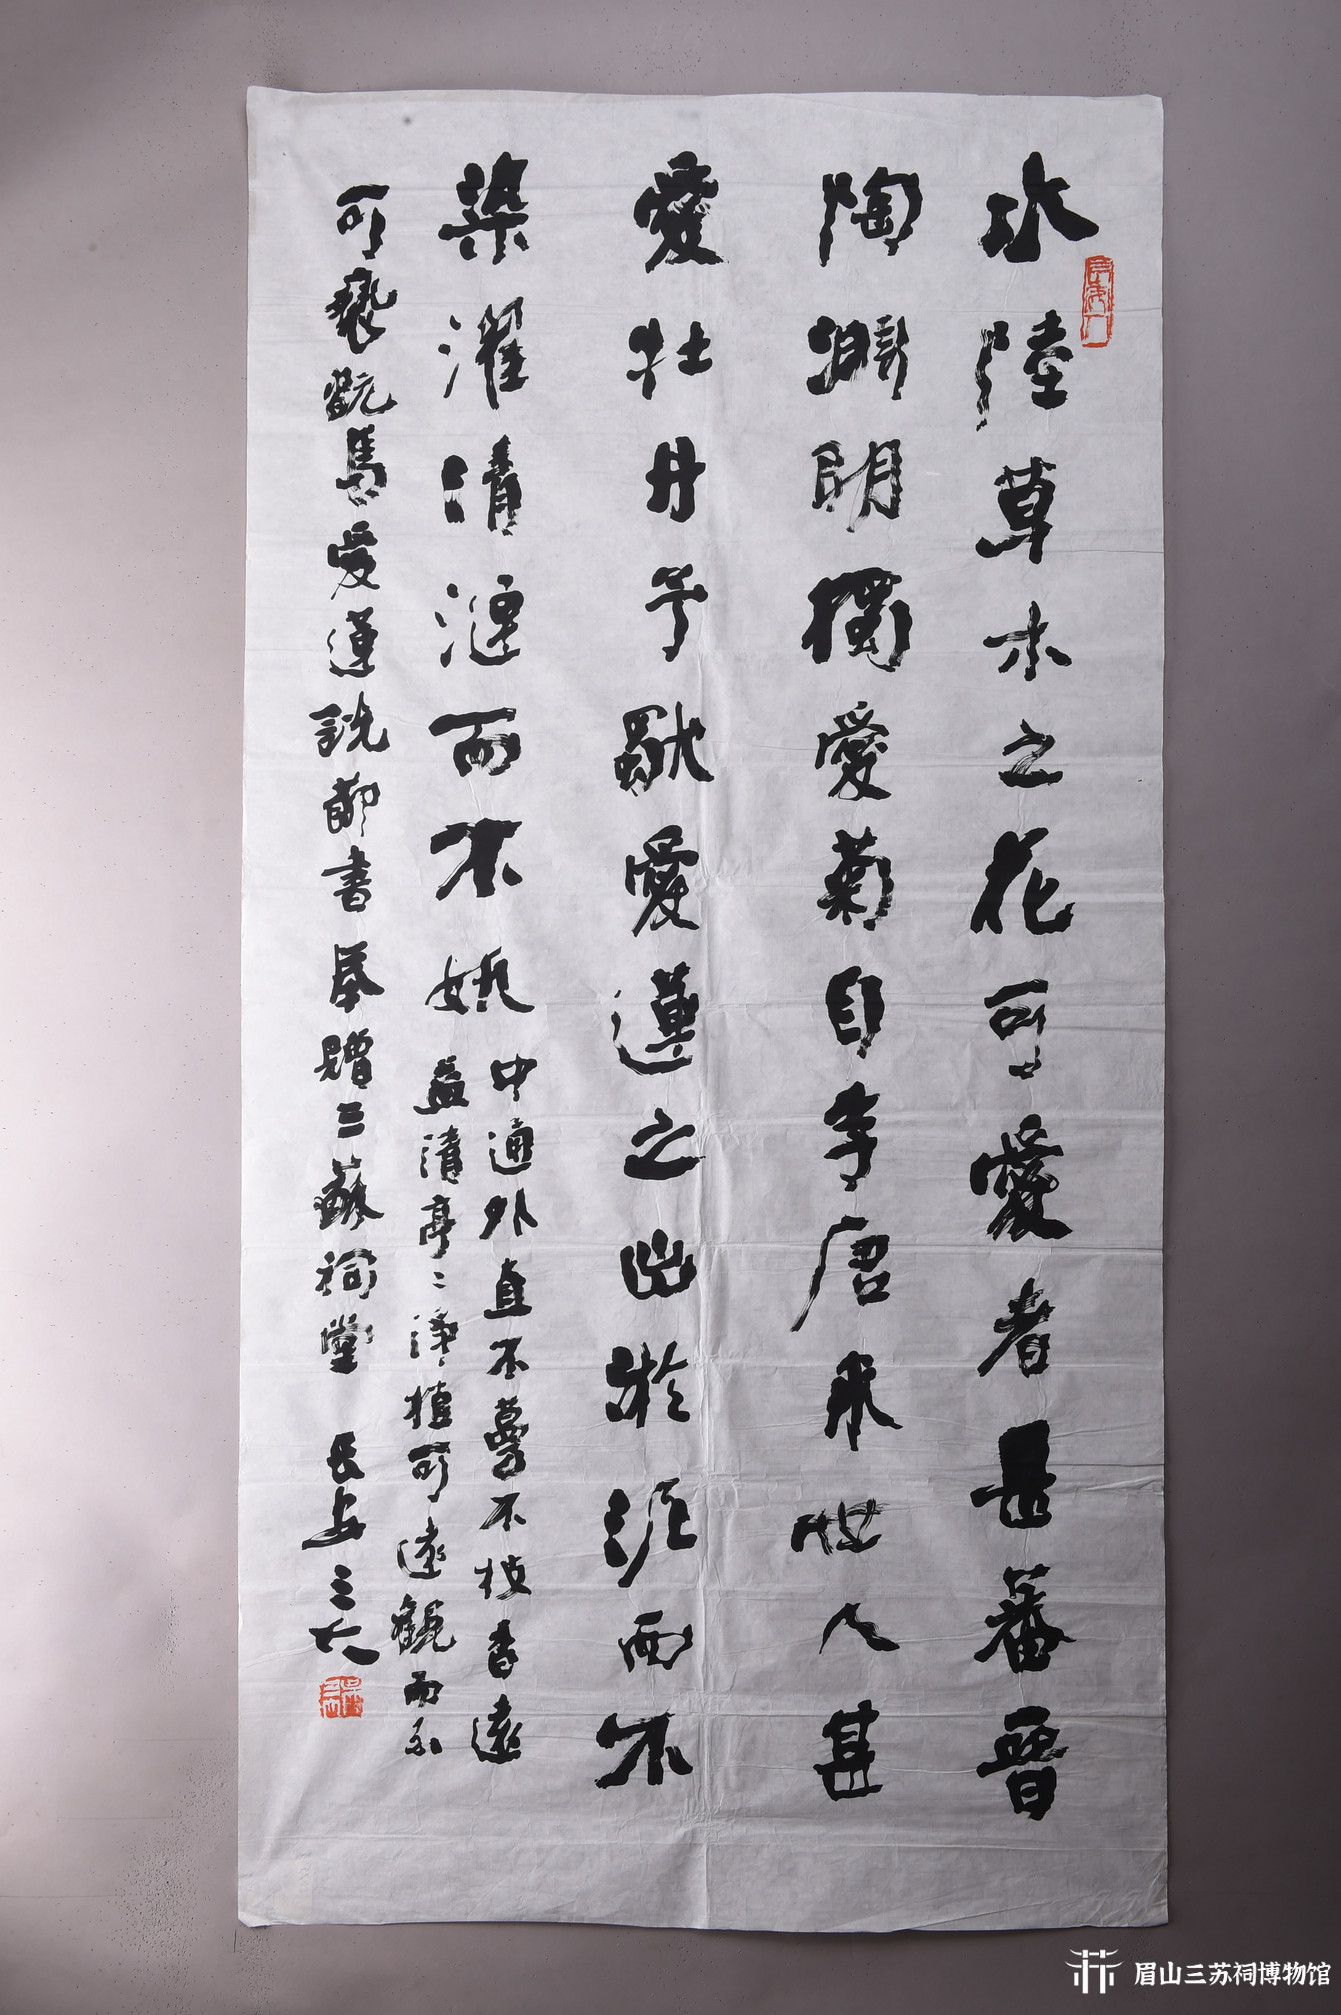 水陸草木之花可愛者甚蕃晉
陶淵明獨愛菊自李唐來世人甚
愛牡丹予獨愛蓮之出於泥而不
染濯清漣而不妖
中通外直不蔓不枝香遠
益清亭〻淨植可遠觀而不
可褻翫焉愛蓮說節書奉贈三蘇祠堂 長安
眉山三苏祠博物馆